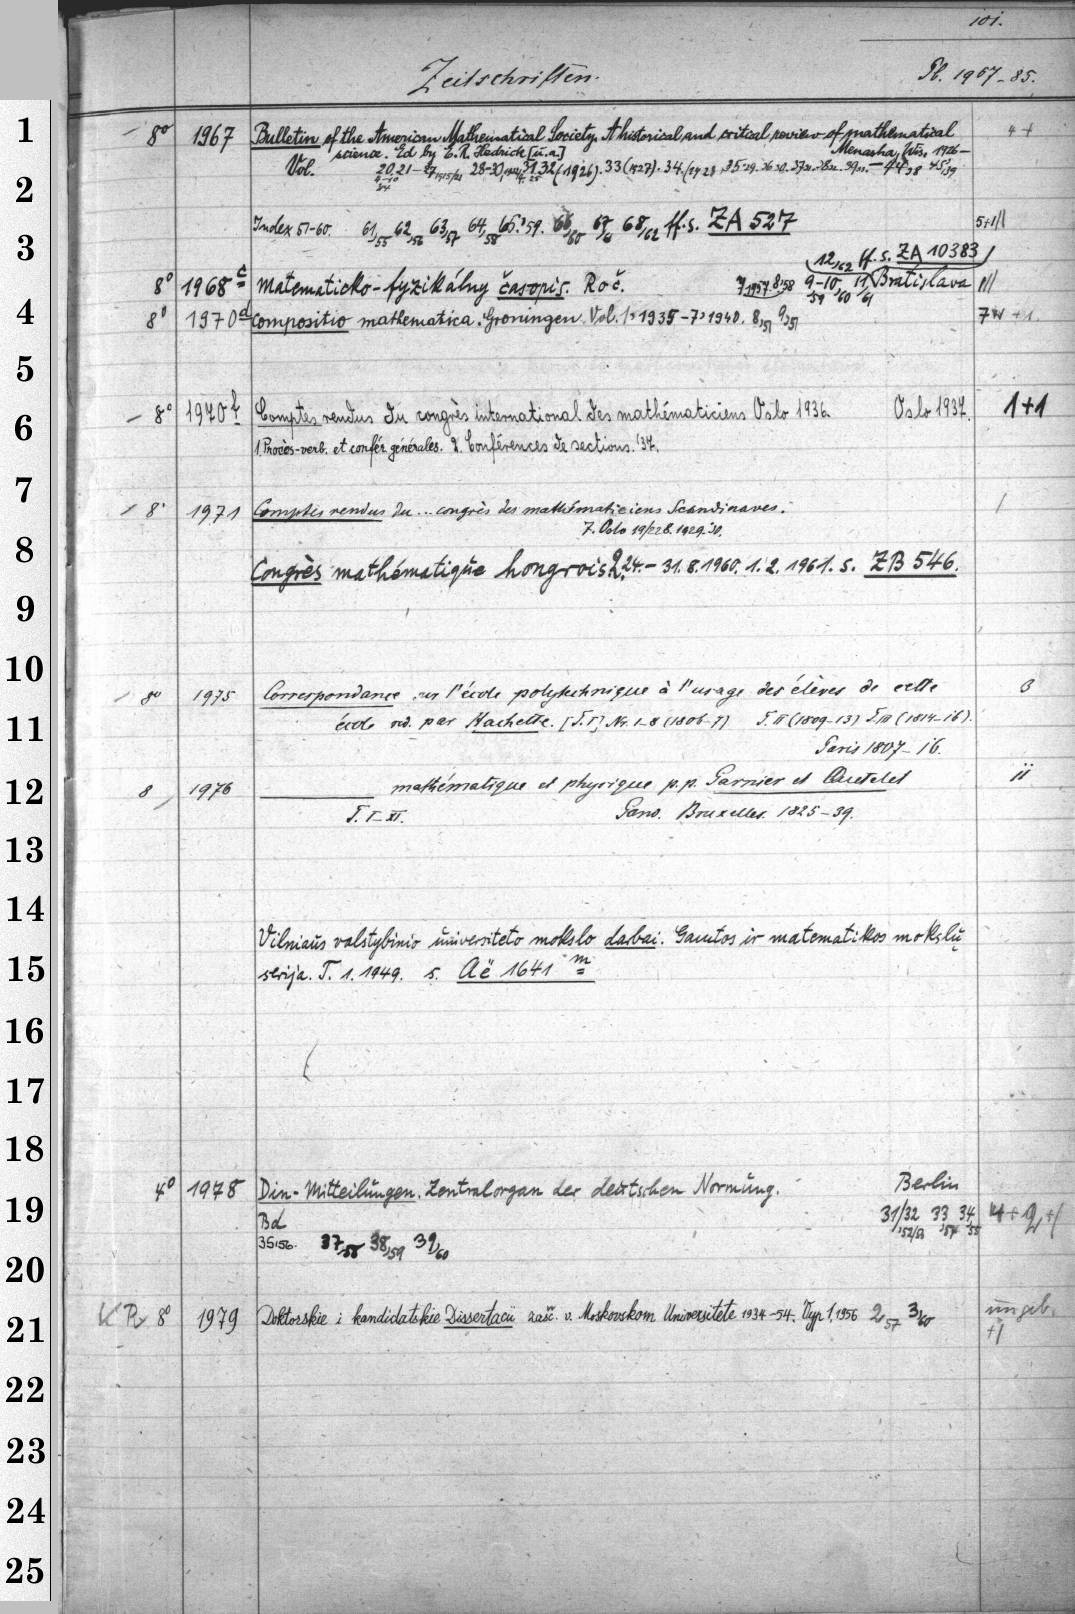 101.
Zeitschriften. Pb. 1967-85.
1
2
3
4
5
6
7
8
9
10
11
12
13
14
15
16
17
18
19
20
21
22
23
24
25
8° 1967 Bulletin of the American Mathematical Society. A historical and critical review of mathematical 4+
science. Ed by E. R. Hedrick [u.a.] Menasha, Wis. 1926-
Vol. 20, 21-27 28-30, 31, 32 (1926). 33 (1927). 34
Index 51-60. 61,55 62,56 63,57 64,58 65,'59. 66,60 67,61 68,62 ff. s. ZA 527
12,62 ff. s. ZA 10383
8° 1968 c Matematicko-fyzikálny časopis. Roč. 7,1957 8,58 9-10 11 Bratislava
59 60 61
8° 1970 d Compositio mathematica. Groningen. Vol. 1,1935-7,1940. 8,51 9,51
8° 1970 k Comptes rendus du congrès international des mathématiciens Oslo 1936. Oslo 1937. 1+1
1. Procès-verb. et confér. générales. 2. Conférences de sections. '37.
8° 1971 Comptes rendus du ... congrès des mathématiciens Scandinaves.
7. Oslo 19/22.8.1929.'30.
Congrès mathématique hongrois 2. 24.-31.8.1960. 1.2. 1961. s. ZB 546.
8° 1975 Correspondance sur l'école polytechnique à l'usage des élèves de cette 3
école réd. par Hachette. [T.I] Nr. 1-8 (1806-7) T. II (1809-13) T. III (1814-16).
Paris 1807-16.
8 1976 mathématique et physique p.p. Garnier et Quetelet 11
T. I-XI. Gand. Bruxelles. 1825-39.
Vilniaus valstybinio universiteto mokslo darbai. Gamtos ir matematikos mokslų
serija. T. 1. 1949. s. Aë 1641 m
4° 1978 Din-Mitteilungen. Zentralorgan der deutschen Normung. Berlin
Bd 31/32 33 34 4+2+1
35,56. 37,58 38,59 39,60
8° 1979 Doktorskie i kandidatskie Dissertacii zašč. v. Moskovskom Universitete 1934-54. Vyp 1,1956 2,57 3,60 ungeb.
+1